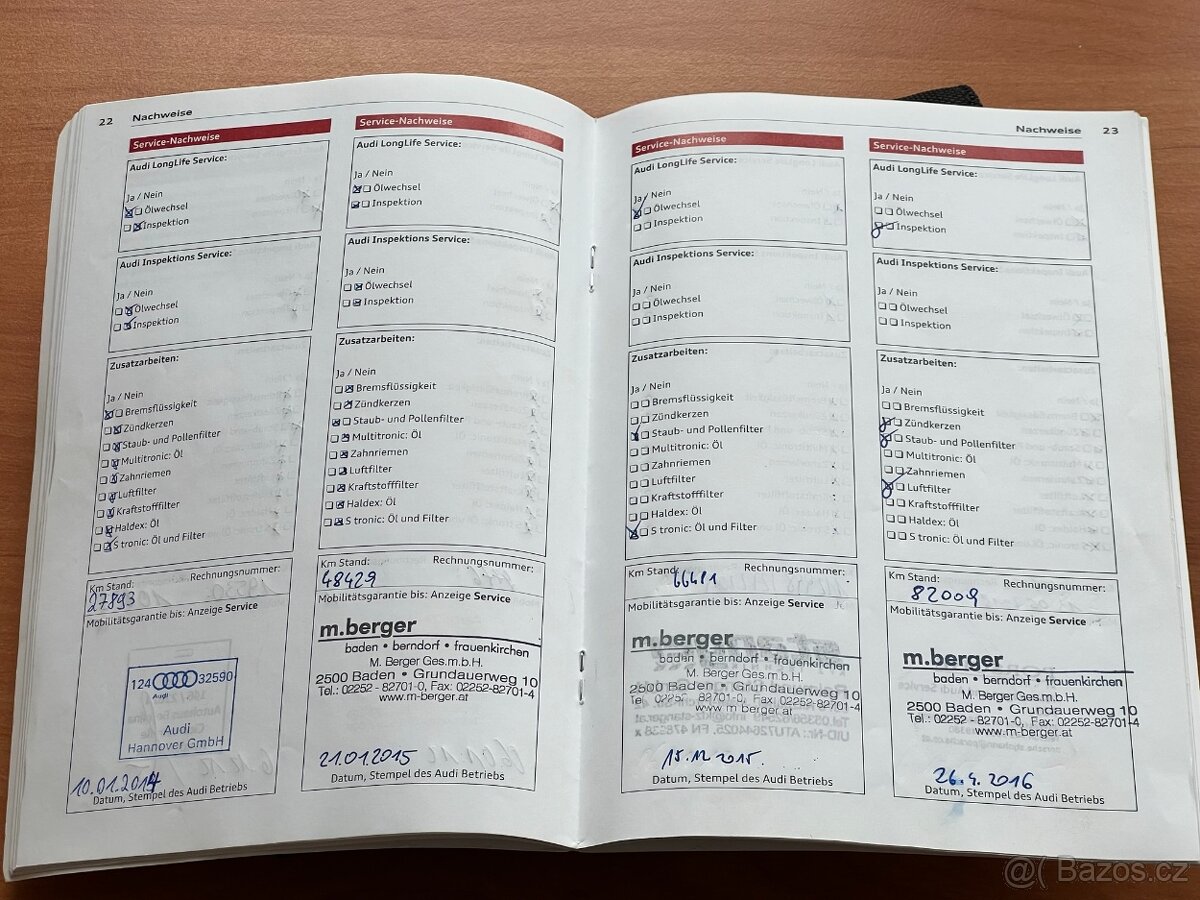 22 Nachweise
Service-Nachweise
Audi LongLife Service:
Ja / Nein
Ölwechsel
Inspektion
Audi Inspektions Service:
Ja / Nein
Ölwechsel
Inspektion
Zusatzarbeiten:
Ja / Nein
Bremsflüssigkeit
Zündkerzen
Staub- und Pollenfilter
Multitronic: Öl
Zahnriemen
Luftfilter
Kraftstofffilter
Haldex: Öl
S tronic: Öl und Filter
Km Stand: Rechnungsnummer:
27893
Mobilitätsgarantie bis: Anzeige Service
124 32590
Audi
Audi
Hannover GmbH
10.01.2014
Datum, Stempel des Audi Betriebs
Service-Nachweise
Audi LongLife Service:
Ja / Nein
Ölwechsel
Inspektion
Audi Inspektions Service:
Ja / Nein
Ölwechsel
Inspektion
Zusatzarbeiten:
Ja / Nein
Bremsflüssigkeit
Zündkerzen
Staub- und Pollenfilter
Multitronic: Öl
Zahnriemen
Luftfilter
Kraftstofffilter
Haldex: Öl
S tronic: Öl und Filter
Km Stand: Rechnungsnummer:
48429
Mobilitätsgarantie bis: Anzeige Service
m.berger
baden • berndorf • frauenkirchen
M. Berger Ges.m.b.H.
2500 Baden • Grundauerweg 10
Tel.: 02252 - 82701-0, Fax: 02252-82701-4
www.m-berger.at
21.01.2015
Datum, Stempel des Audi Betriebs
Nachweise 23
Service-Nachweise
Audi LongLife Service:
Ja / Nein
Ölwechsel
Inspektion
Audi Inspektions Service:
Ja / Nein
Ölwechsel
Inspektion
Zusatzarbeiten:
Ja / Nein
Bremsflüssigkeit
Zündkerzen
Staub- und Pollenfilter
Multitronic: Öl
Zahnriemen
Luftfilter
Kraftstofffilter
Haldex: Öl
S tronic: Öl und Filter
Km Stand: Rechnungsnummer:
66481
Mobilitätsgarantie bis: Anzeige Service
m.berger
baden • berndorf • frauenkirchen
M. Berger Ges.m.b.H.
2500 Baden • Grundauerweg 10
02252 - 82701-0, Fax: 02252-82701-4
www.m-berger.at
15.12.2015.
Datum, Stempel des Audi Betriebs
Service-Nachweise
Audi LongLife Service:
Ja / Nein
Ölwechsel
Inspektion
Audi Inspektions Service:
Ja / Nein
Ölwechsel
Inspektion
Zusatzarbeiten:
Ja / Nein
Bremsflüssigkeit
Zündkerzen
Staub- und Pollenfilter
Multitronic: Öl
Zahnriemen
Luftfilter
Kraftstofffilter
Haldex: Öl
S tronic: Öl und Filter
Km Stand: Rechnungsnummer:
82009
Mobilitätsgarantie bis: Anzeige Service
m.berger
baden • berndorf • frauenkirchen
M. Berger Ges.m.b.H.
2500 Baden • Grundauerweg 10
Tel.: 02252 - 82701-0, Fax: 02252-82701-4
www.m-berger.at
26.4.2016
Datum, Stempel des Audi Betriebs
@( Bazos.cz